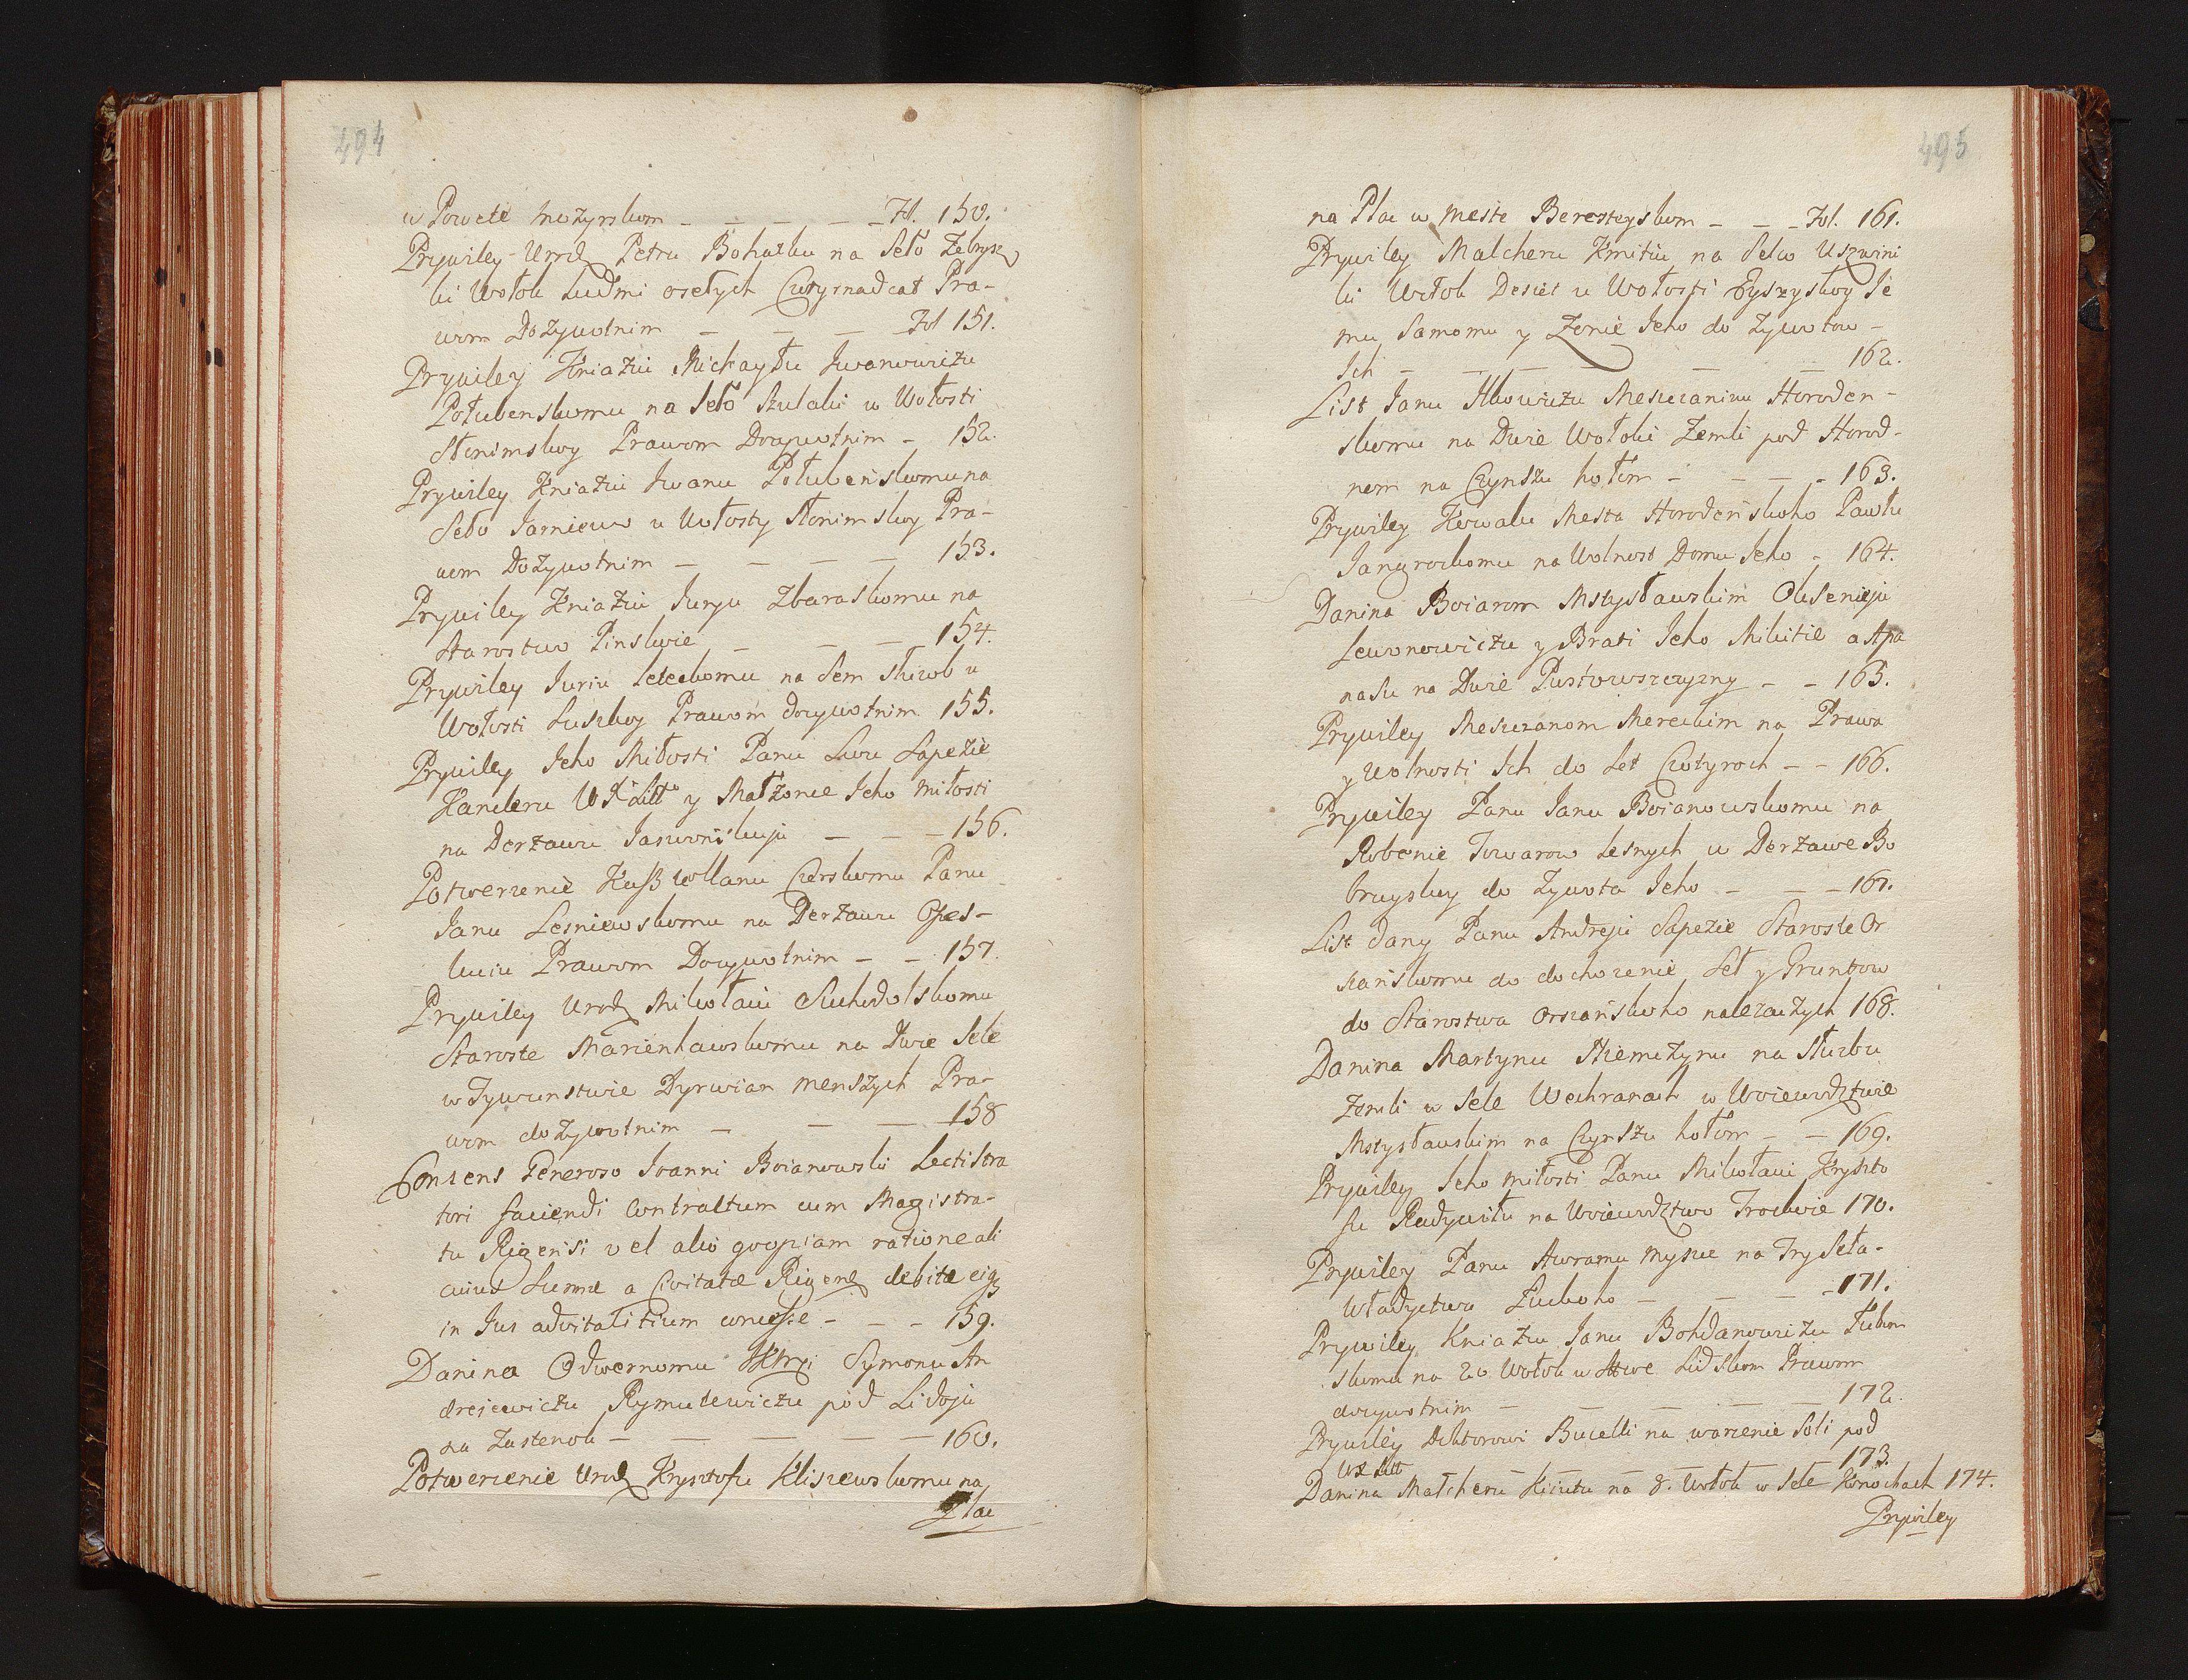 494
w Powete Mozyrskom – – – – – Fol. 150.
Prywiley Urod Petru Bohuszu na Seło Zabrysz
ki Wołok Ludmi osełych Cztyrnadcat Pra-
wom Dożywotnim – – – Fol 151.
Prywiley Kniaziu Michayłu Iwanowiczu
Połubenskomu na Seło Szulaki w Wołosti
Słonimskoy Prawom Dożywotnim – 152.
Prywiley Kniaziu Iwanu Połubenskomu na
Seło Jarniewo w Wołosty Słonimskoy Pra-
wom Dożywotnim – – – – 153.
Prywiley Kniaziu Juryu Zbaraskomu na
Starostwo Pinskoie – – – 154.
Prywiley Juriu na Sem Służob w
Wołosti Prawom dożywotnim 155.
Prywiley Jeho Miłosti Panu Lwu Sapezie
Kancleru W X Litt y Małżonce Jeho Miłosti
na Derżawu – – – 156.
Potwerżenie Kasztellanu Czerskomu Panu
Janu Lesniewskomu na Derżawu Opes-
kuiu Prawom Dożywotnim – – 157.
Prywiley Urod Mikołaiu Suchodolskomu
Staroste Marienhawskomu na Dwie Sele
w Tywunstwie Dyrwian Menszych Pra-
wom dożywotnim – – – 158
Consens Generoso Joanni Boianowski Lectistra
tori faciendi Contractum cum Magistra-
tu Rigensi vel alio quopiam ratione ali
cuius Summæ a Civitate Rigen debitæ eiq
in Jus advitalitium concessæ – – – 159.
Danina Odwernomu Symonu An
drejewiczu Rymutewiczu pod Lidoju
na Zastenok – – – – – 160.
Potwerżenie Urod Krysztofu Kliszewskomu na
Plac
495
na Plac w Meste Beresteyskom – – – Fol. 161.
Prywiley Malcheru Kmitiu na Selco Uszwini
ki Wołok Desiet w Wołosti Eyszyskoy Je
mu Samomu y Żonie Jeho do Żywotow –
Ich – – – – – – 162.
List Janu Ilkowiczu Meszczaninu Horoden-
skomu na Dwie Wołoki Zemli pod Horod-
nem na Czynszu hołom – – – – 163.
Prywiley Kowalu Mesta Horodenskoho Pawłu
na Wolnost Domu Jeho – 164.
Danina Boiarom Mstysławskim Oksenieju
Lewonowiczu y Brati Jeho Mikitie a Apa
nasu na Dwie Pustowszczyzny – – 165.
Prywiley Meszczanom Mereckim na Prawa
y Wolnosti Ich do Let Czotyroch – – 166.
Prywiley Panu Janu Boianowskomu na
Robenie Towarow Lesnych w Derżawe Bo
bruyskoy do Żywota Jeho – – – 167.
List dany Panu Andreju Sapezie Staroste Or
szanskomu do dochożenie Seł y Gruntow
do Starostwa Orszanskoho należaczych 168.
Danina Martynu na Służbu
Zemli w Sele Wechranach w Woiewodztwie
Mstysławskim na Czynszu hołom – – 169.
Prywiley Jeho Miłosti Panu Mikołaiu Kryszto
fu Radywiłu na Woiewodztwo Trockoie 170.
Prywiley Panu Awramu Myszce na Try Seła-
Władyctwa Łuckoho – – – – 171.
Prywiley Kniaziu Janu Bohdanowiczu Łukom
skomu na 20 Wołok w Lidskom Prawom
dożywotnim – – – – – 172.
Prywiley Doktorowi Bucelli na warżenie Soli pod
W X Litt – – – – 173.
Danina Małcheru na 8. Wołok w Sele Konochach 174.
Prywiley